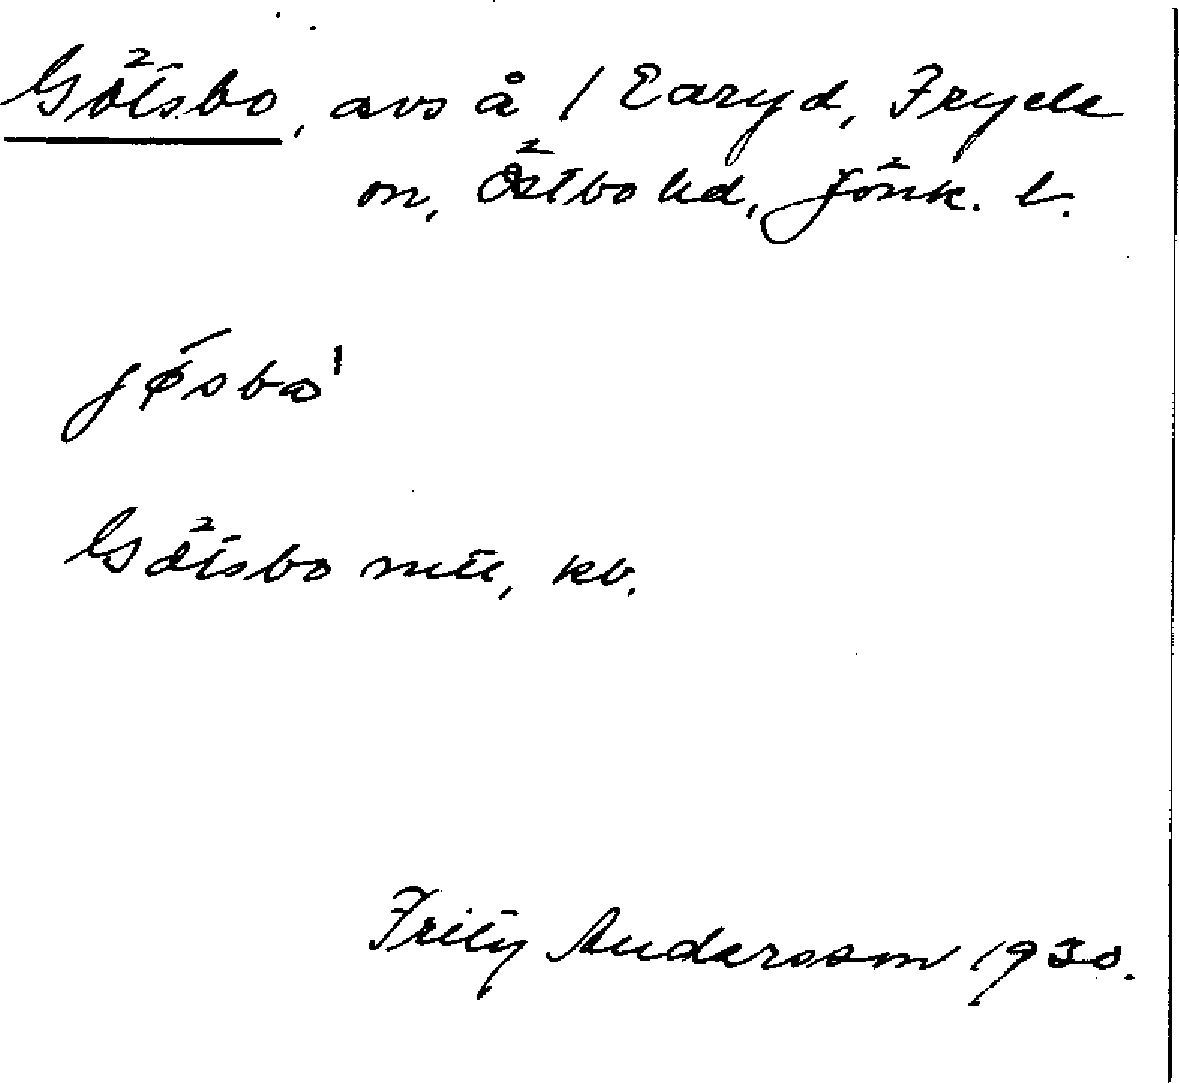 Götsbo, avs å 1 Earyd, Fryele
sn, Östbo hd, Jönk. l.
jøsbo'
Götsbo mtl, kb.
Fritz Andersson 1930.